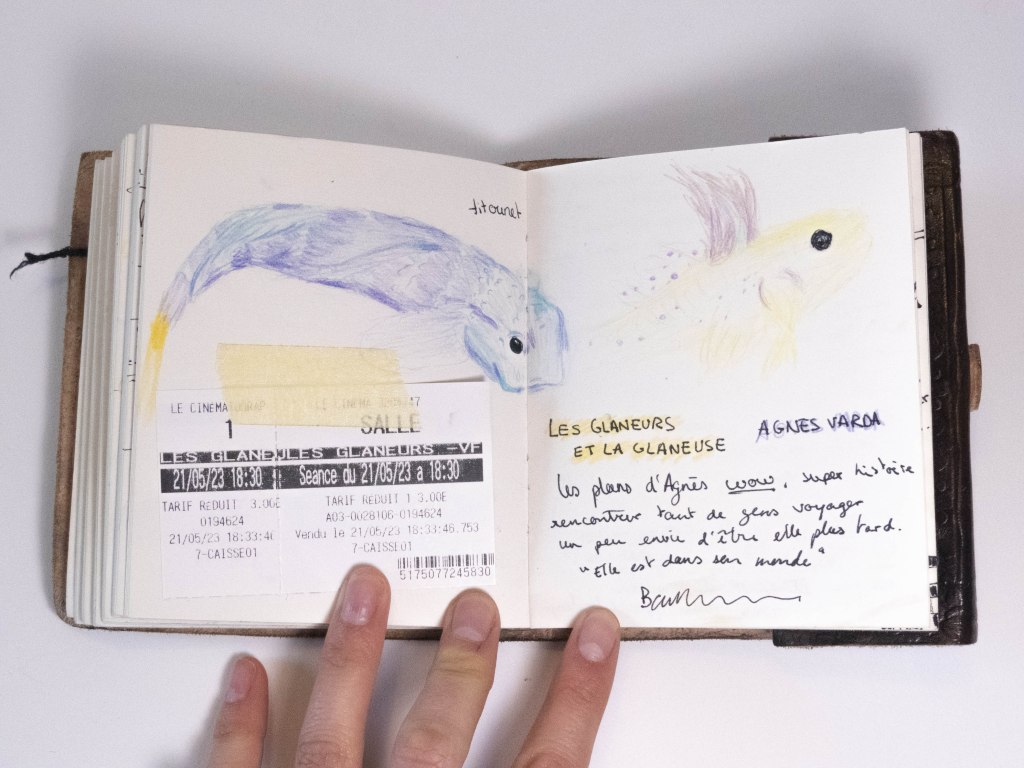 titounet
LE CINEMATOGRAP LE CINEMA 47
1 SALLE
LES GLANEU LES GLANEURS -VF
21/05/23 18:30 Seance du 21/05/23 a 18:30
TARIF REDUIT 3.00E TARIF REDUIT 1 3.00E
0194624 A03-0028106-0194624
21/05/23 18:33:46 Vendu le 21/05/23 18:33:46.753
7-CAISSE01 7-CAISSE01
5175077245830
LES GLANEURS AGNES VARDA
ET LA GLANEUSE
les plans d'Agnès wow, super histoire
rencontrer tant de gens voyager
un peu envie d'être elle plus tard.
"Elle est dans son monde"